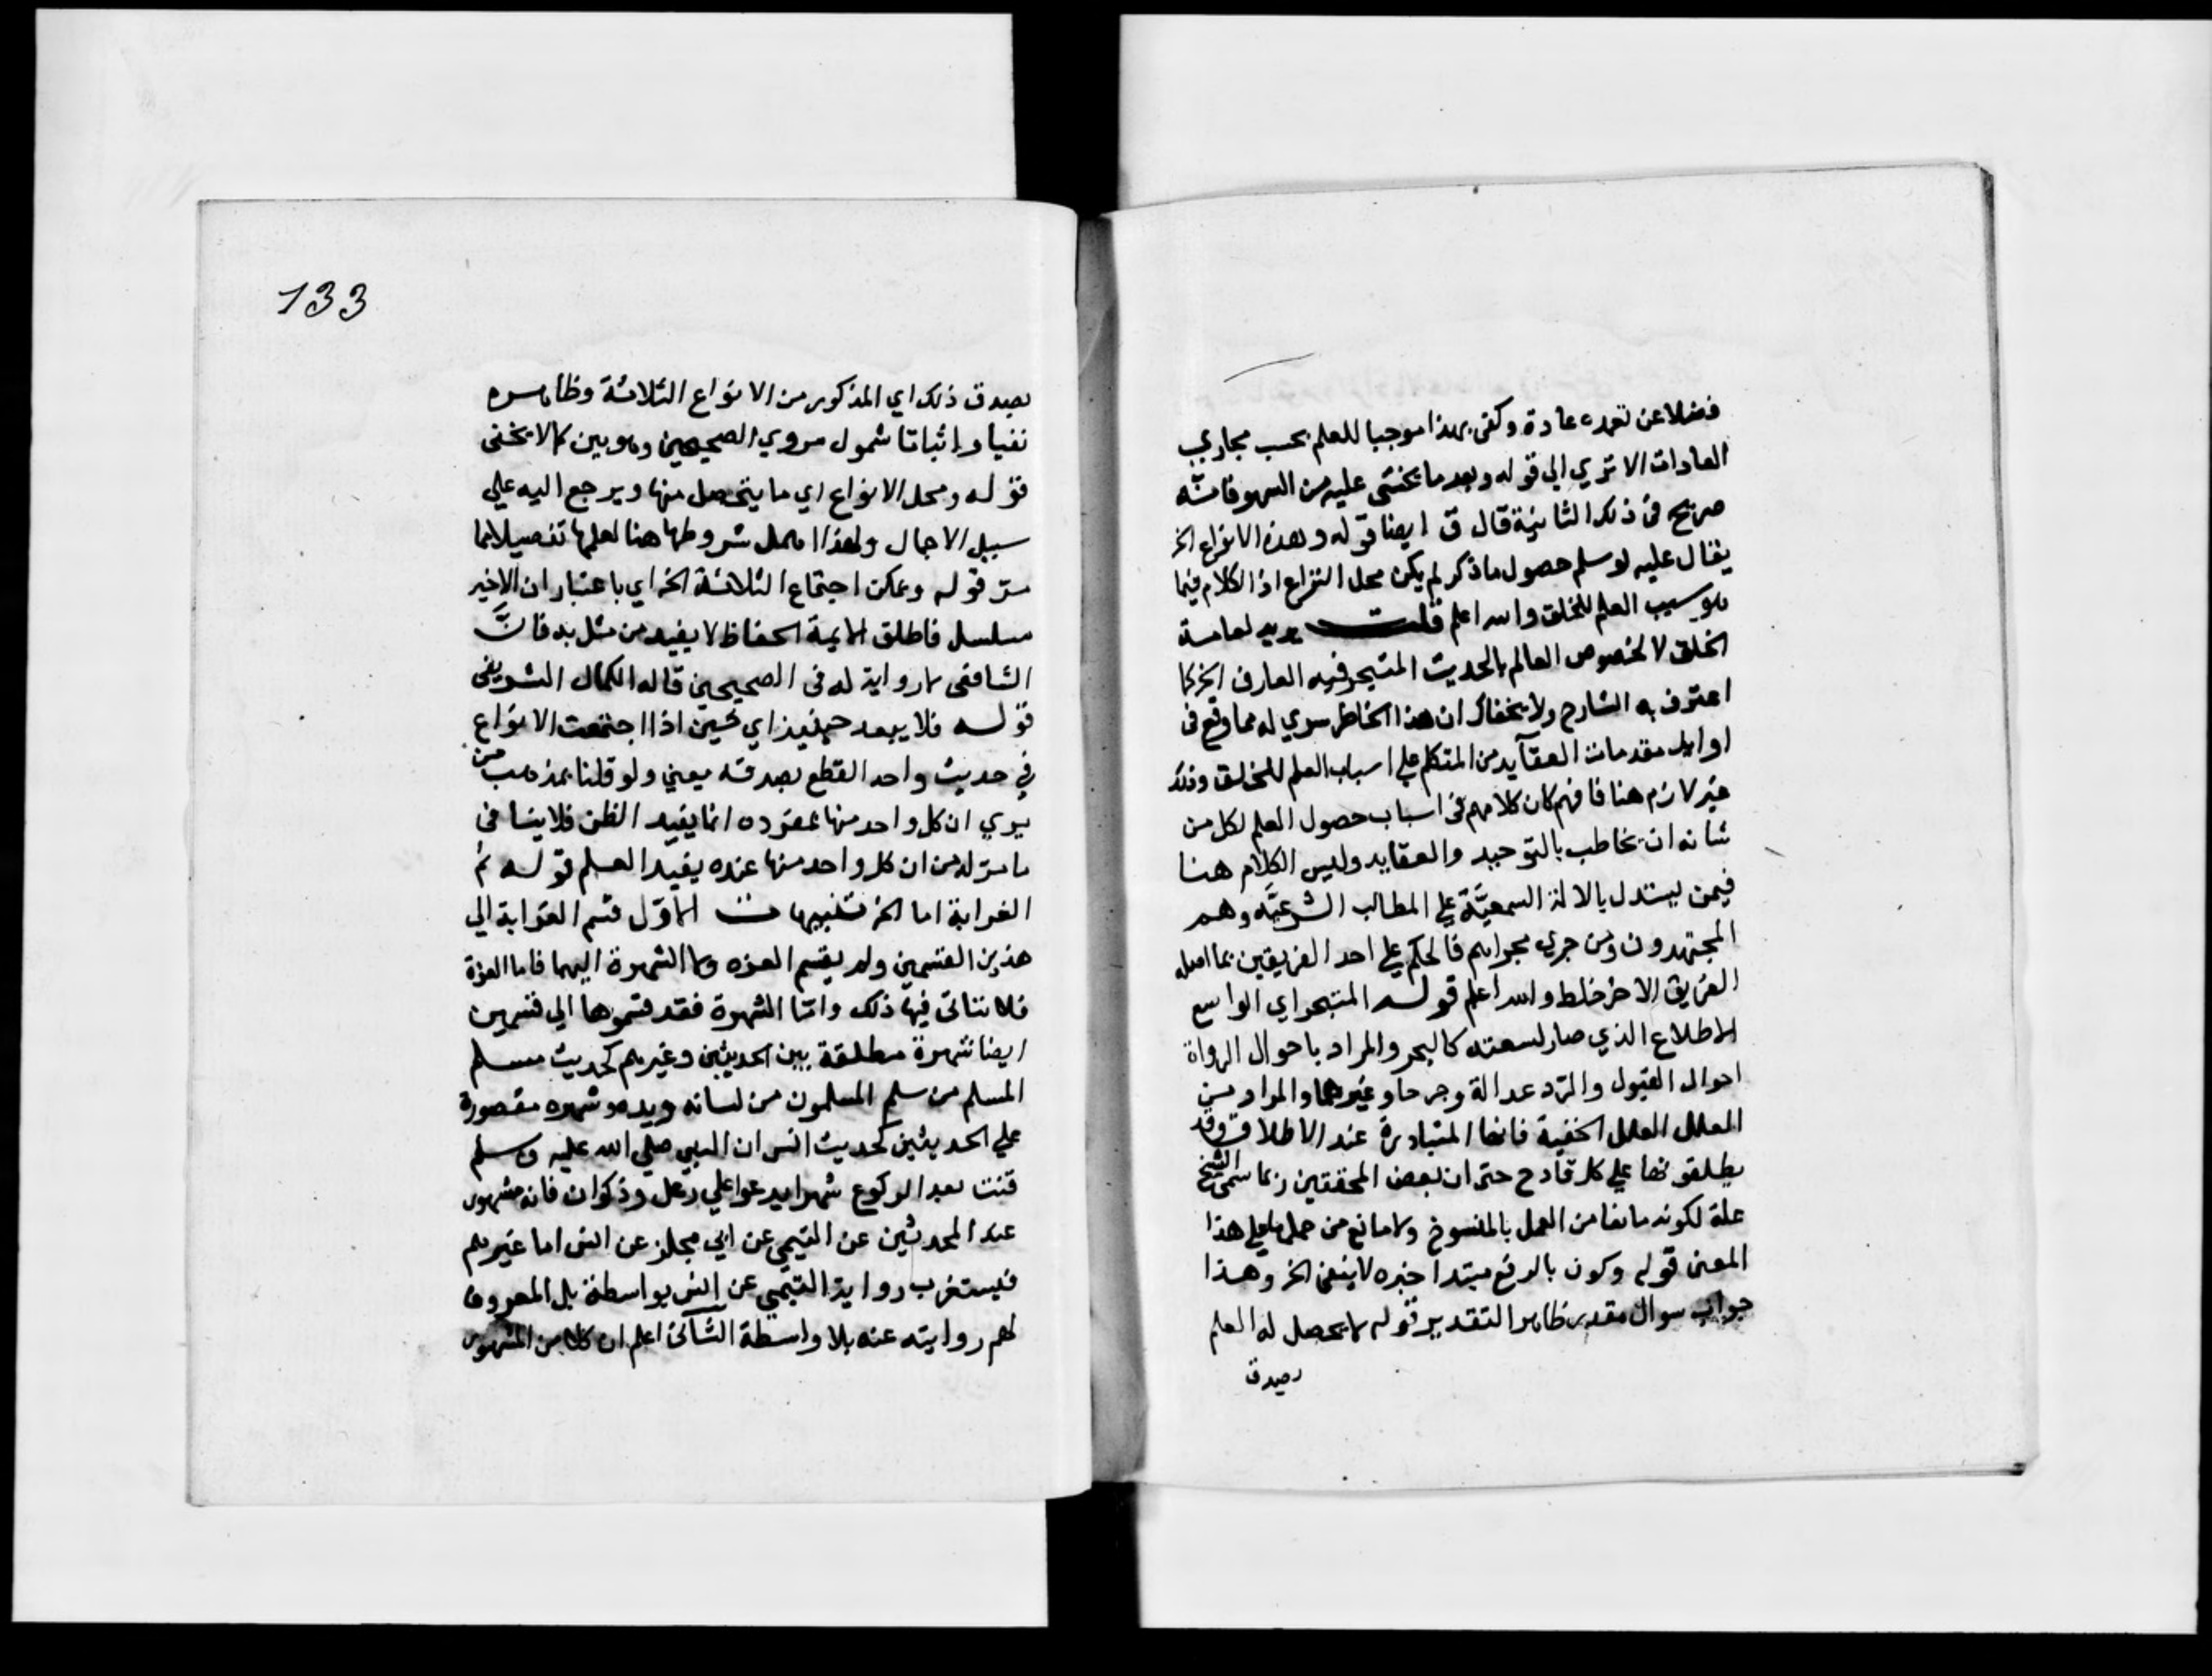 فضلا عن تعمده عادة وكفى بهذا موجبا للعلم بحسب مجاري
العادات الا تري الي قوله وبعد ما يخشى عليه من السهو فانه
صريح في ذلك الثانية قال ق ايضا قوله وهذه الانواع الخ
يقال عليه لو سلم حصول ما ذكر لم يكن محل النزاع اذ الكلام فيما
هو سبب العلم للخلق والله اعلم قلت يريد لعامة
الخلق لا لخصوص العالم بالحديث المتبحر فيه العارف الخ كما
اعترف به الشارح ولا يخفاك ان هذا الخاطر سري له مما وقع في
اوايل مقدمات العقآيد من المتكلم علي اسباب العلم للخلق وذلك
غير لازم هنا فافهم كان كلامهم في اسباب حصول العلم لكل من
شانه ان يخاطب بالتوحيد والعقايد وليس الكلام هنا
فيمن يستدل بالادلة السمعيّة علي المطالب الشرعيّه وهم
المجتهدون ومن جري مجراهم فالحكم علي احد الفريقين بما اصله
الفريق الاخر خلط والله اعلم قوله المتبحر اي الواسع
الاطلاع الذي صار لسعته كالبحر والمراد باحوال الرواة
احوال القبول والرّد عدالة وجرحا وغيرهما والمراد من
العلل العلل الخفية فانها المتبادرة عند الاطلاق وقد
يطلقونها علي كل قادح حتى ان بعض المحققين ربما سمى النسخ
علة لكونه مانعا من العمل بالمنسوخ ولا مانع من حملها علي هذا
المعنى قوله وكون بالرفع مبتدا خبره لا ينفى الخ وهذا
جواب سوال مقدر ظاهر التقدير قوله لا يحصل له العلم
بصدق
133
بصدق ذلك اي المذكور من الانواع الثلاثة وظاهره
نفيا واثباتا شمول مروي الصحيحين وهو بين كما لا يخفى
قوله ومحل الانواع اي ما يتحصل منها ويرجع اليه علي
سبيل الاجمال ولهذا اهمل شروطها هنا لعلمها تفصيلا مما
مرّ قوله ويمكن اجتماع الثلاثة الخ اي باعتبار ان الاخير
مسلسل فاطلق الايمة الحفاظ لا يفيد من مثل به فانّ
الشافعى لا رواية له في الصحيحين قاله الكمال الشريفى
قوله فلا يبعد حينيذ اي فحين اذا اجتمعت الانواع
في حديث واحد القطع بصدقه يعني ولو قلنا بمذهب من
يري ان كل واحد منها بمفرده انما يفيد الظن فلا ينافي
ما مرّ له من ان كل واحد منها عنده يفيد العلم قوله ثم
الغرابة اما الخ تنبيهات الاوّل قسم الغرابة الي
هذين القسمين ولم يقسم العزه ولا الشهرة اليهما فاما العزة
فلا يتاتى فيها ذلك وامّا الشهرة فقد قسموها الي قسمين
ايضا شهرة مطلقة بين الحديثين وغيرهم كحديث مسلم
المسلم من سلم المسلمون من لسانه ويده وشهره مقصورة
علي الحديثين كحديث انس ان النبي صلي الله عليه وسلم
قنت بعد الركوع شهرا يدعوا علي رعل وذكوان فانه مشهور
عند المحدثين عن التيمي عن ابي مجلز عن انس اما غيرهم
فيستغرب رواية التيمي عن انس بواسطة بل المعروف
لهم روايته عنه بلا واسطة الثّاني اعلم ان كلا من المشهور